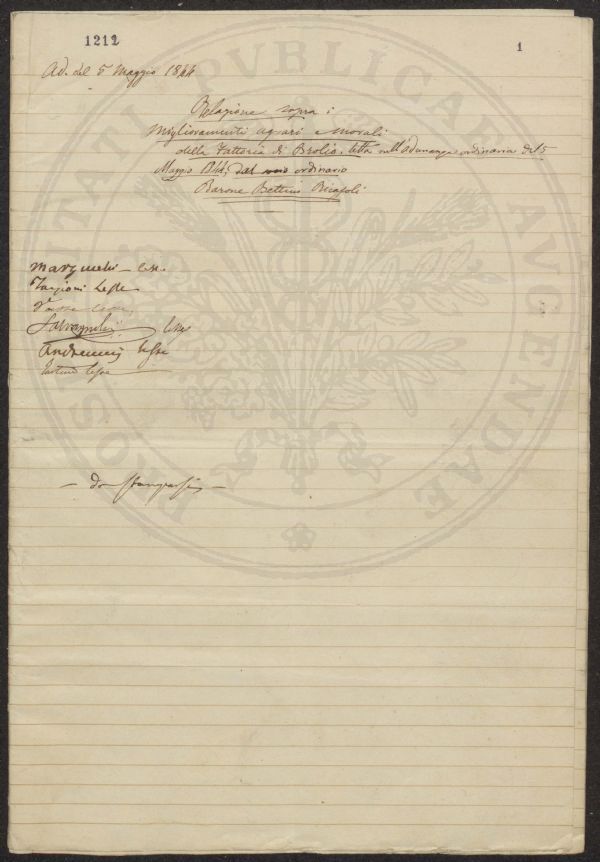 1212
1
Ad. del 5 Maggio 1844
Relazione sopra i
Miglioramenti agrari e morali
della Fattoria di Brolio, letta nell'Adunanza ordinaria del 5
Maggio 1844, dal socio ordinario
Barone Bettino Ricasoli
lesse
Targioni lesse
lesse
Salvagnoli lesse
lesse
lesse
da stamparsi
PROSPERITATI PUBLICAE AUGENDAE